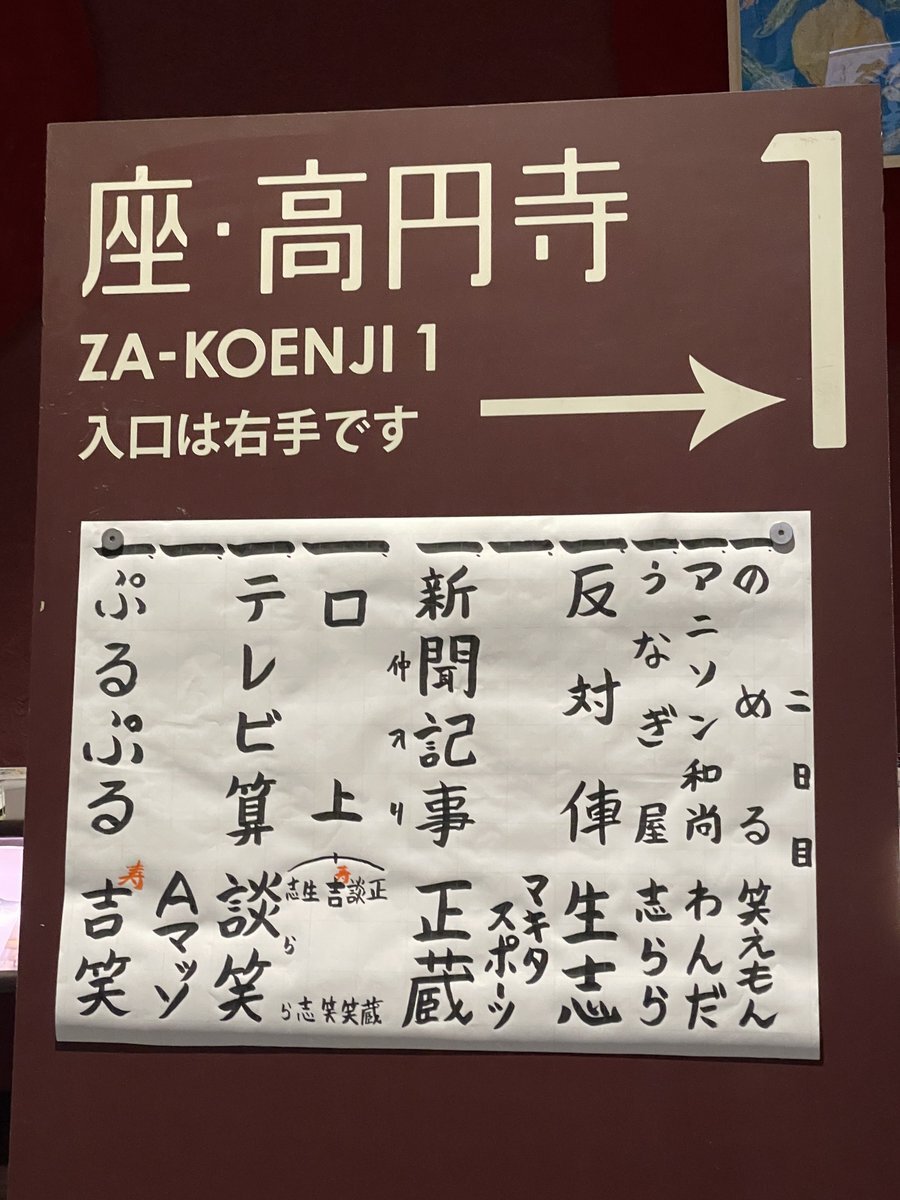 座・高円寺
1
ZA-KOENJI 1
入口は右手です
二日目
一 のめる 笑えもん
一 アニソン和尚 わんだ
一 うなぎ屋 志らら
一 反対俥 生志
一 マキタスポーツ
一 新聞記事 正蔵
仲入り
一 口上
正蔵
談笑
寿 吉笑
生志
志らら
一 テレビ算 談笑
一 Aマッソ
一 ぷるぷる 寿 吉笑